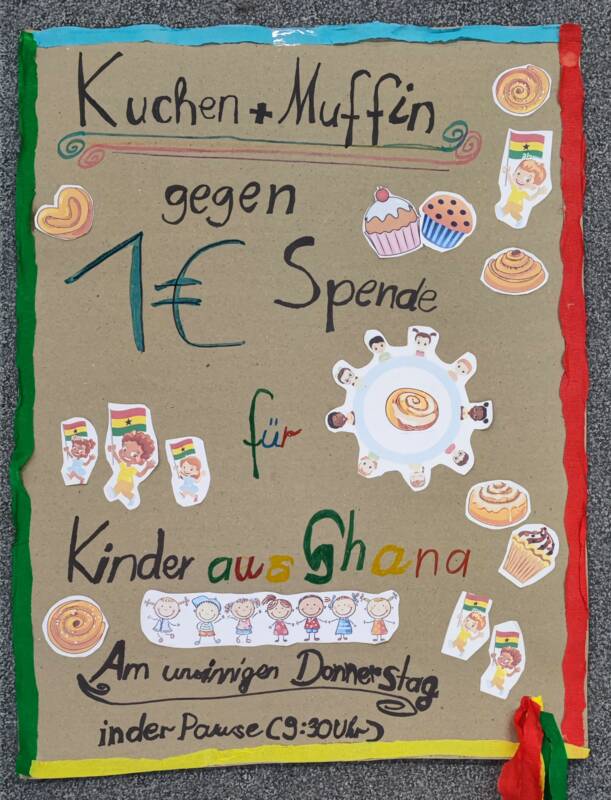 Kuchen + Muffin
gegen
1€ Spende
für
Kinder aus Ghana
Am unsinnigen Donnerstag
in der Pause (9:30 Uhr)